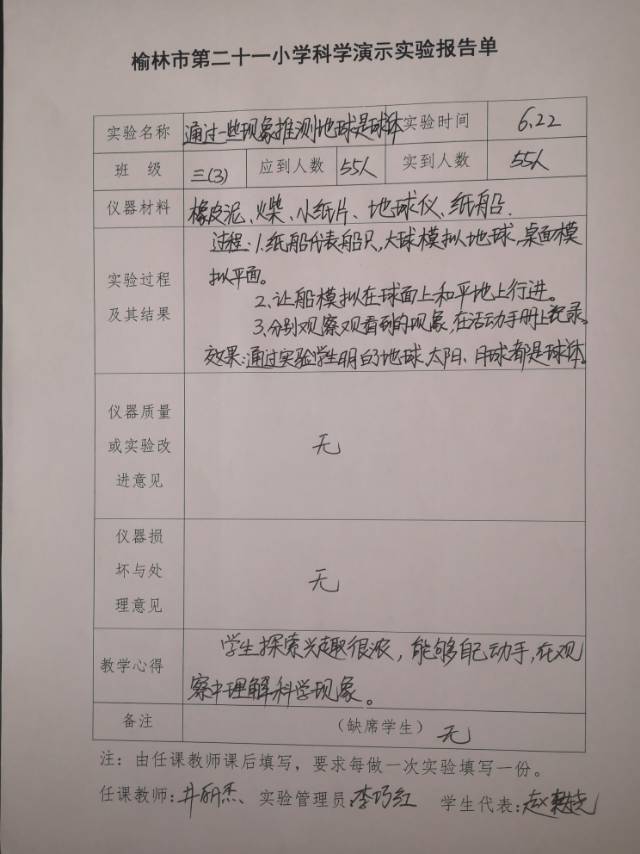 榆林市第二十一小学科学演示实验报告单
实验名称 通过一些现象推测地球是球体 实验时间 6.22
班 级 三(3) 应到人数 55人 实到人数 55人
仪器材料 橡皮泥、火柴、小纸片、地球仪、纸船.
实验过程及其结果
过程:1.纸船代表船只,大球模拟地球,桌面模
拟平面。
2.让船模拟在球面上和平地上行进。
3.分别观察观看到的现象,在活动手册上记录。
效果:通过实验学生明白了地球、太阳、月球都是球体
仪器质量
或实验改
进意见
无
仪器损
坏与处
理意见
无
教学心得
学生探索兴趣很浓,能够自己动手,在观
察中理解科学现象。
备注 (缺席学生) 无
注:由任课教师课后填写,要求每做一次实验填写一份。
任课教师:井丽杰、实验管理员:李巧红 学生代表:赵